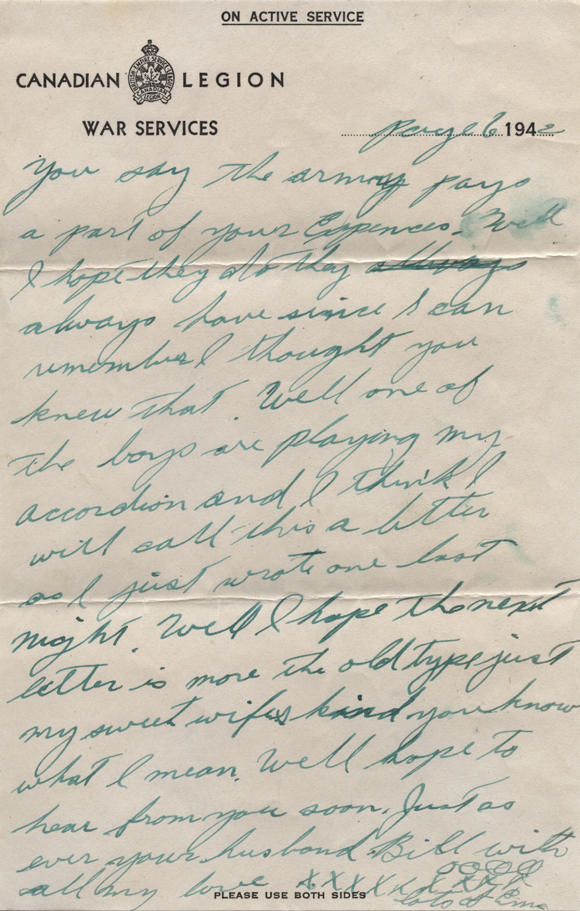 ON ACTIVE SERVICE
CANADIAN LEGION
WAR SERVICES
page 6 1942
You say the army pays
a part of your Expences. Well
I hope they do they allways
always have since I can
remember I thought you
knew that. Well one of
the boys are playing my
accordion and I think I
will call this a letter
as I just wrote one last
night. Well I hope the next
letter is more the old type just
my sweet wifes kind you know
what I mean. Well hope to
hear from you soon. Just as
ever your husband Bill with
all my love XXXXX
OOOO
lots of em
PLEASE USE BOTH SIDES